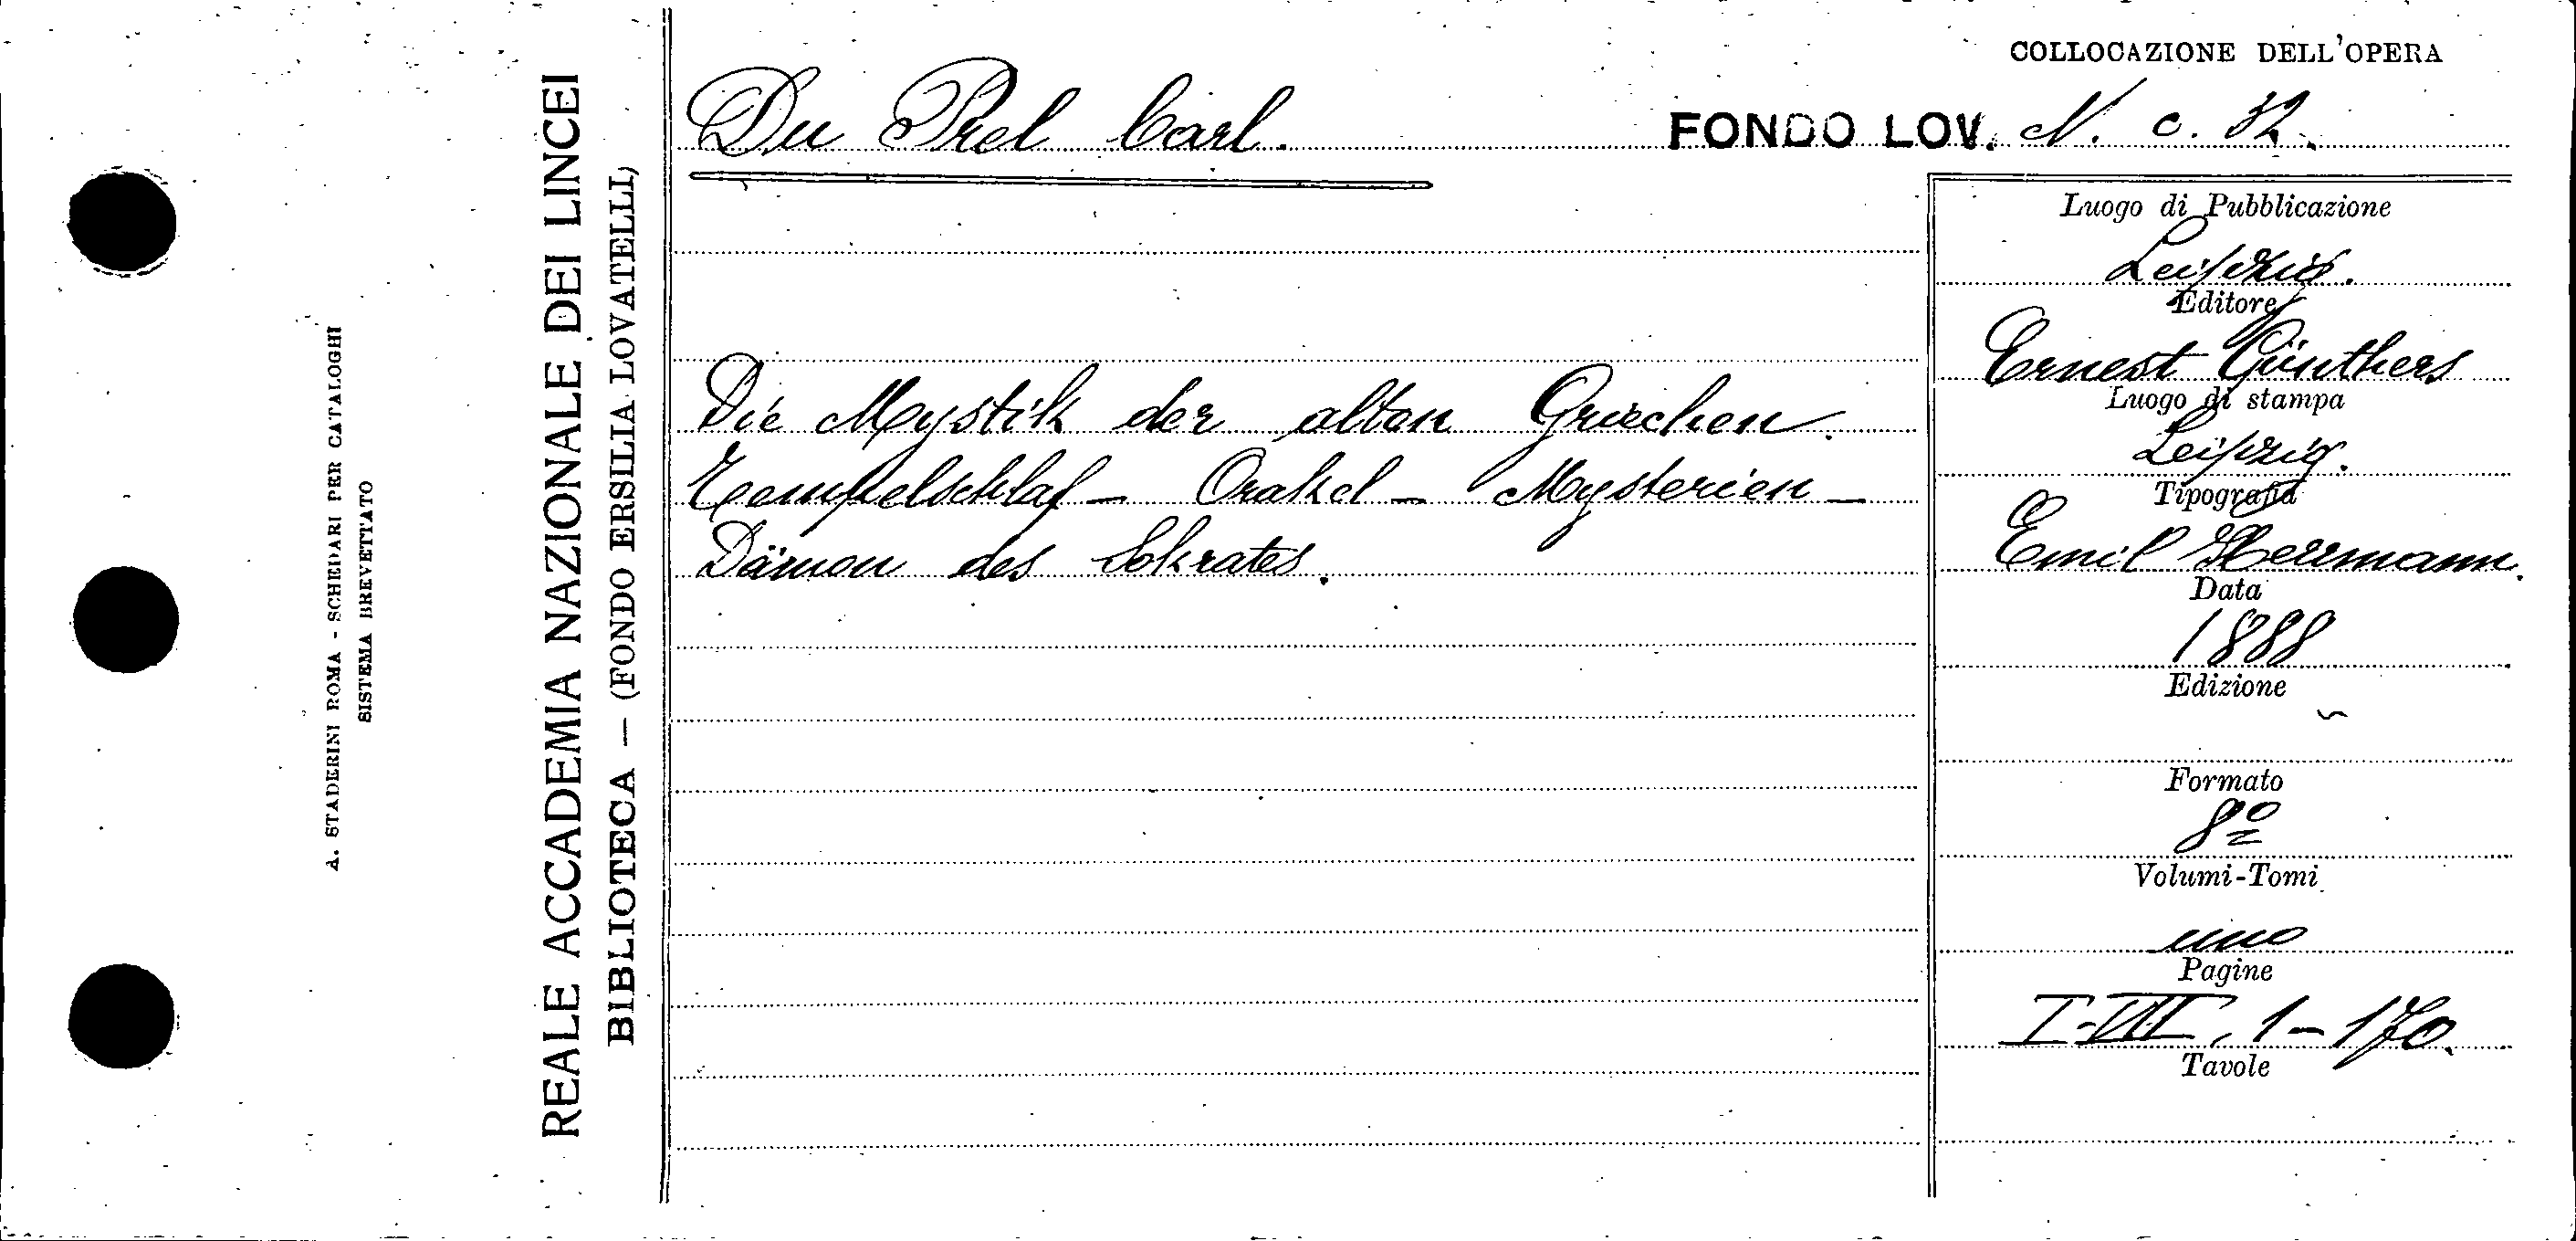 COLLOCAZIONE DELL'OPERA
Du Prel Carl.
FONDO LOV. N. c. 32.
REALE ACCADEMIA NAZIONALE DEI LINCEI
BIBLIOTECA — (FONDO ERSILIA LOVATELLI)
A. STADERINI ROMA - SCHEDARI PER CATALOGHI
SISTEMA BREVETTATO
Die Mystik der alten Griechen.
Tempelschlaf — Orakel — Mysterien —
Dämon des Sokrates.
Luogo di Pubblicazione
Leipzig.
Editore
Ernest Günthers
Luogo di stampa
Leipzig.
Tipografia
Emil Herrmann.
Data
1888
Edizione
~
Formato
8º
Volumi-Tomi
uno
Pagine
I-VII, 1-170.
Tavole